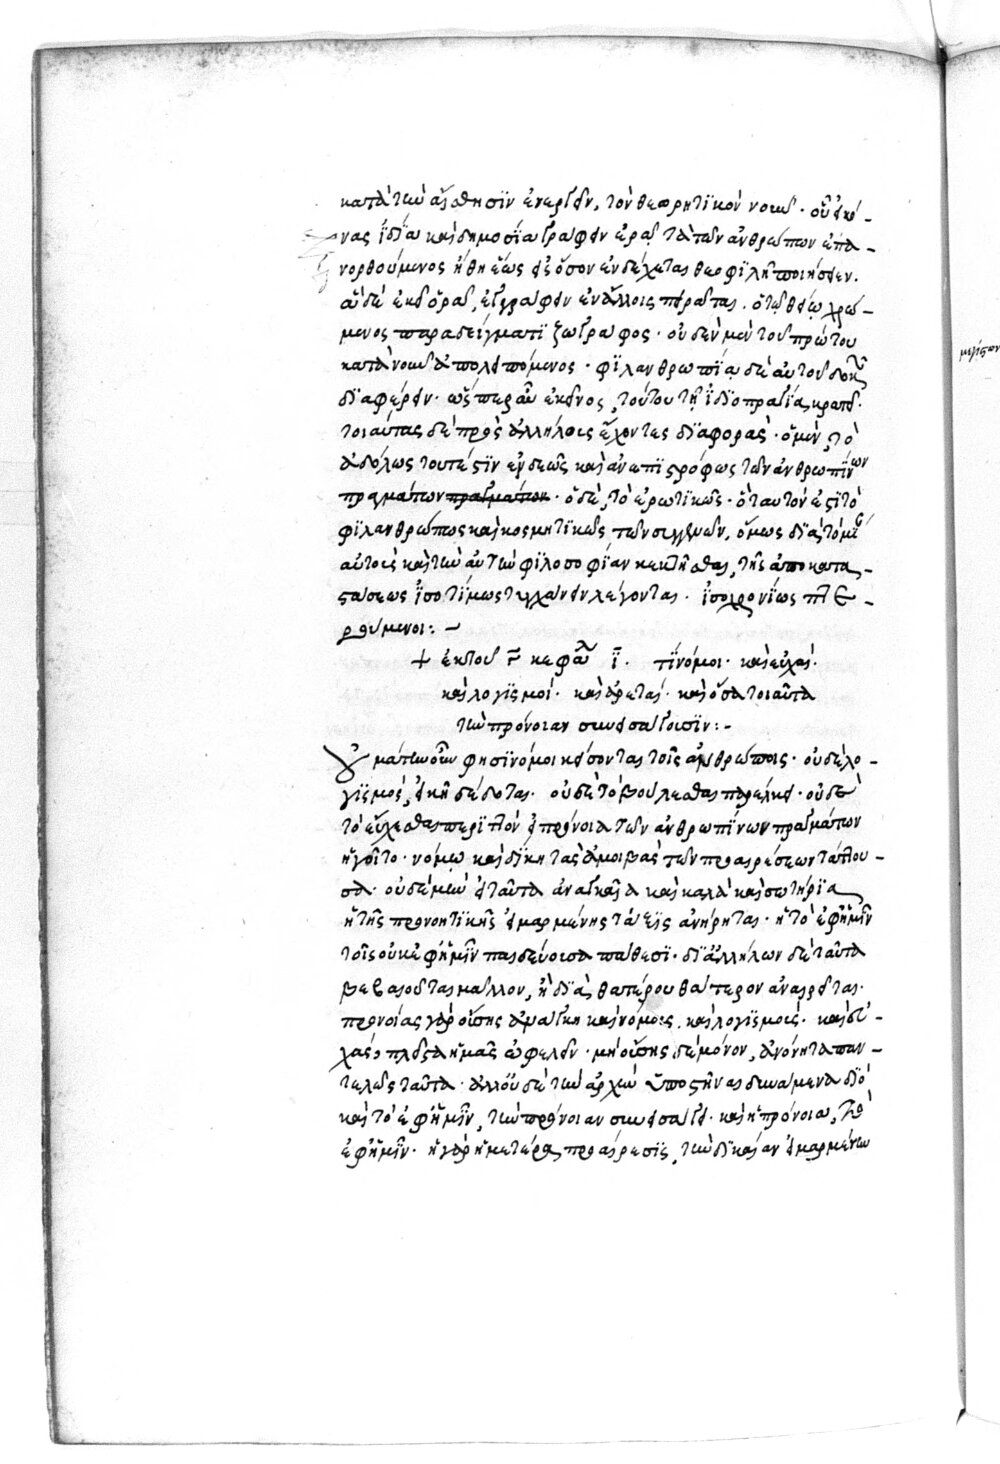 κατὰ τὴν αἴσθησϊν ἐνεργεῖν, τὸν θεωρητϊκὸν νοῦν · οὗ ἐκεί –
νας ἰδίᾳ καὶ δημοσίᾳ γράφειν ἐρᾷ τὰ τῶν ἀνθρώπων ἐπα –
νορθούμενος ἤθη ἕως εἰς ὅσον ἐνδέχεται θεοφϊλῆ ποιήσειεν.
ἃ δὲ ἐκεῖ ὁρᾷ, ἐγγράφειν ἐν ἄλλοις πειρᾶται. ὁ τῷ θείῳ χρώ –
μενος παραδείγματϊ ζωγράφος · οὐδὲν μὲν τοῦ πρώτου
κατὰ νοῦν ἀπολειπόμενος · φϊλανθρωπίᾳ δὲ αὐτοῦ δοκεῖ
διαφέρειν · ὥσπερ αὖ ἐκεῖνος, τούτου τῇ ἰδϊοπραγίᾳ κρατεῖ.
τοιαύτας δὲ πρὸς ἀλλήλους ἔχοντες διαφοράς · ὁ μὲν, τὸ
ἀδόλως τουτέστϊν ἐνδεῶς καὶ ἀνεπιστρόφως τῶν ἀνθρωπίνων
πραγμάτων πραγμάτων · ὁ δὲ, τὸ ἐρωτϊκῶς · ὃ ταυτόν ἐστϊ τὸ
φϊλανθρώπως καὶ κοσμητϊκῶς τῶν συγγενῶν, ὅμως διὰ τὸ μὲ
αὐτοῖς καὶ τὴν αὐτὴν φϊλοσοφίαν κεκτῆσθαι, τῆς ἀποκατα –
στάσεως ἰσοτίμως τυγχάνειν λέγονται. ἰσοχρονίως πτε –
ρούμενοι : –
+ ἐκ τοῦ ϛ κεφάλ ϊ. τί νόμοι · καὶ εὐχαί.
καὶ λογϊσμοί · καὶ ἀρεταί · καὶ ὅσα τοιαῦτα
τὴν πρόνοιαν συνεισάγουσϊν : –
μάτην οὖν φησϊ νόμοι κείσονται τοῖς ἀνθρώποις · οὐδὲ λο –
γϊσμός, εἰκῆ δέδοται. οὐδὲ τὸ βουλεύεσθαι παρέλκει · οὐδὲ
τὸ εὔχεσθαι περιττὸν εἰ πρόνοια τῶν ἀνθρωπίνων πραγμάτων
ἡγοῖτο · νόμῳ καὶ δίκῃ τὰς ἀμοιβὰς τῶν προαιρέσεων τάττου –
σα. οὐδὲ μὴν εἰ ταῦτα ἀναγκαῖα καὶ καλὰ καὶ σωτήρϊα
ἢ τῆς προνοητϊκῆς εἱμαρμένης τάξϊς ἀνῄρηται · ἢ τὸ ἐφ' ἡμῖν
τοῖς οὐκ ἐφ' ἡμῖν παιδεύουσα πάθεσϊ · δι' ἀλλήλων δὲ ταῦτα
βεβαιοῦται μᾶλλον, ἢ διὰ θατέρου θάτερον ἀναιρεῖται.
προνοίας γὰρ οὔσης ἀνάγκη καὶ νόμοις, καὶ λογϊσμοῖς · καὶ εὐ –
χαῖς πλεῖστα ἡμᾶς ὠφελεῖν · μὴ οὔσης δὲ μόνον, ἀνόνητα παν –
τελῶς ταῦτα · ἀλλ' οὐδὲ τὴν ἀρχὴν ὑποστῆναι δυνάμενα διὸ
καὶ τὸ ἐφ' ἡμῖν, τὴν πρόνοιαν συνεισάγει · καὶ ἡ πρόνοια, τὸ
ἐφ' ἡμῖν · ἡ γὰρ ἡμετέρα προαίρεσϊς, τὴν δϊκαίαν εἱμαρμένην